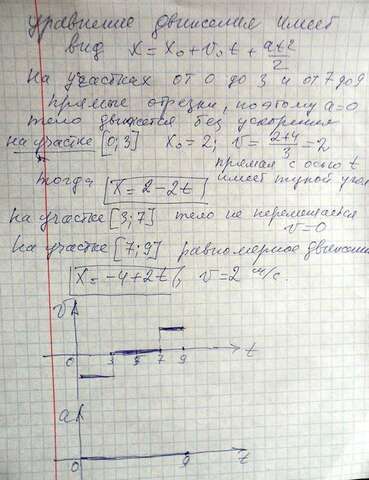 Уравнение движения имеет
вид X = X₀ + v₀t + at2/2
На участках от 0 до 3 и от 7 до 9
прямые отрезки, поэтому a=0
тело движется без ускорения
на участке [0;3] X₀ = 2; V = (2+4)/3 = 2
прямая с осью t
имеет тупой угол
тогда X = 2 - 2t
На участке [3;7] тело не перемещается
v=0
На участке [7;9] равномерное движение
X = -4 + 2t, V = 2 м/с.
V
0 3 5 7 9 t
a
0 9 t